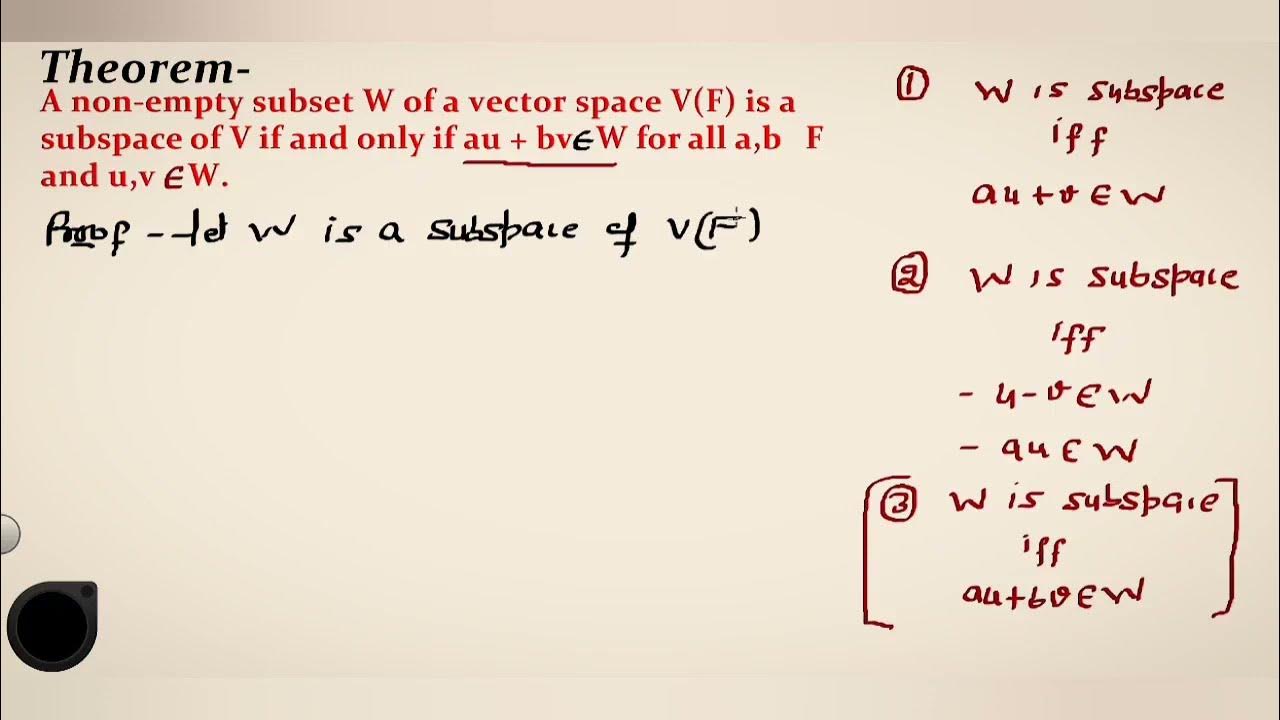 Theorem-
A non-empty subset W of a vector space V(F) is a
subspace of V if and only if au + bv∈W for all a,b F
and u,v ∈W.
Proof - let W is a subspace of V(F)
① W is subspace
iff
au + v ∈ W
② W is subspace
iff
- u - v ∈ W
- au ∈ W
③ W is subspace
iff
au + bv ∈ W